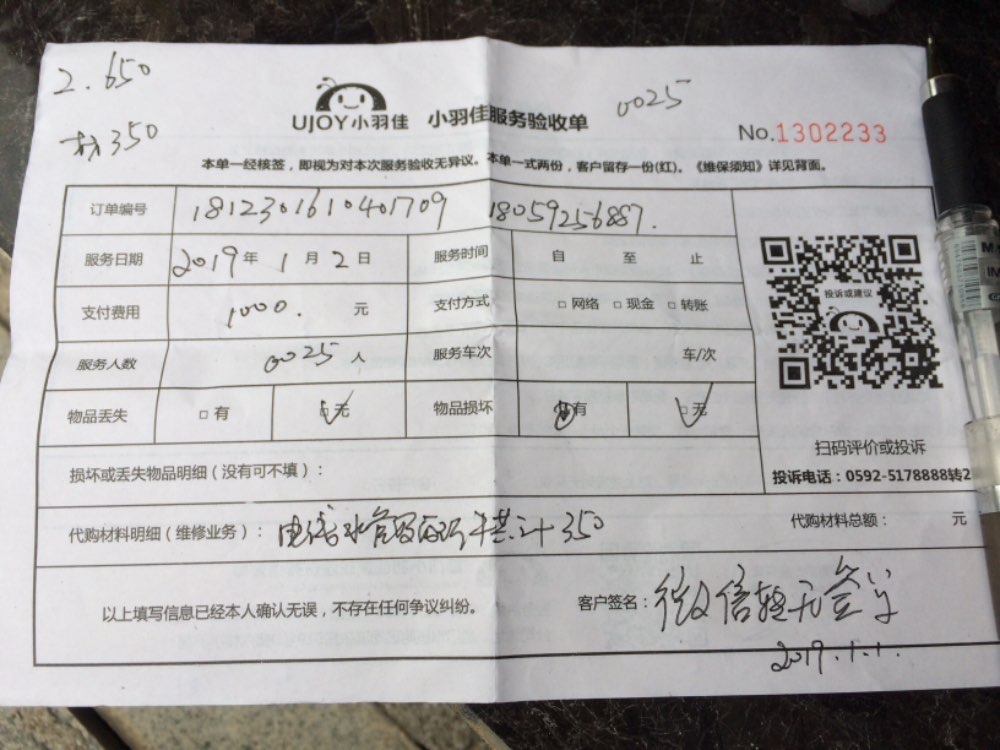 2.650
0025
材350
UJOY小羽佳 小羽佳服务验收单
No.1302233
本单一经核签，即视为对本次服务验收无异议。本单一式两份，客户留存一份(红)。《维保须知》详见背面。
订单编号 1812301610401709 18059256887.
服务日期 2019年1月2日 服务时间 自 至 止
支付费用 1000. 元 支付方式 □网络 □现金 □转账
服务人数 0025人 服务车次 车/次
物品丢失 □有 □无 物品损坏 □有 □无
投诉或建议
扫码评价或投诉
投诉电话：0592-5178888转2
损坏或丢失物品明细（没有可不填）：
代购材料明细（维修业务）：电线水管 计350 代购材料总额： 元
以上填写信息已经本人确认无误，不存在任何争议纠纷。 客户签名：微信 无签字
2019.1.1.